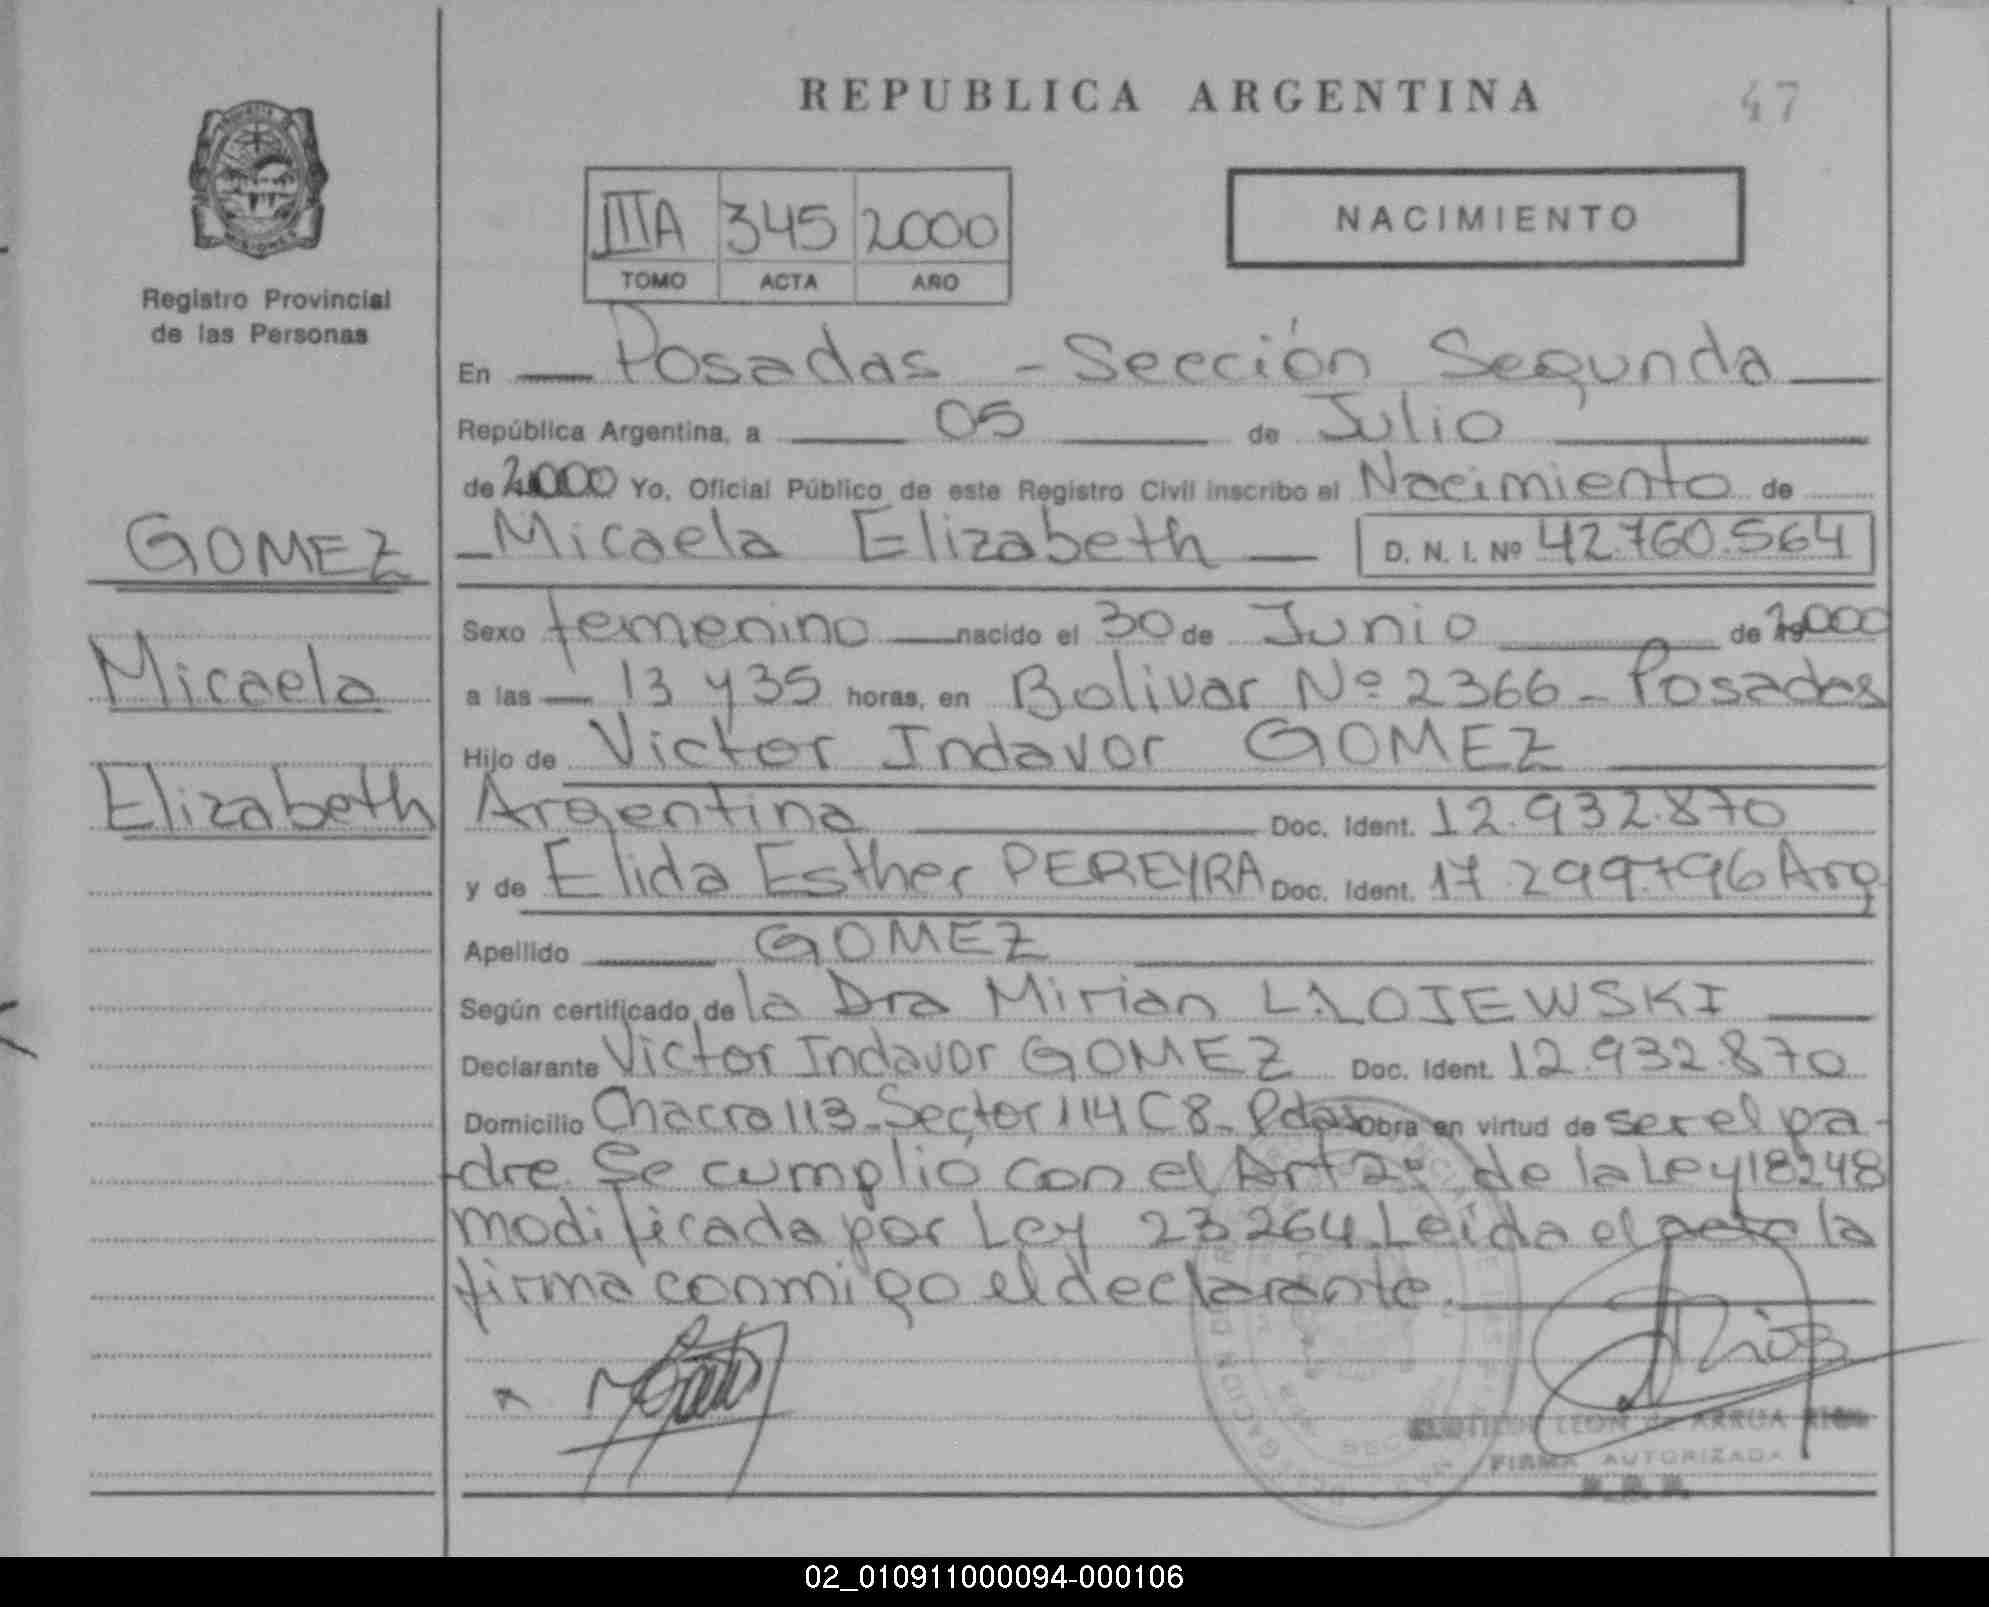 REPUBLICA ARGENTINA
47
IIIA 345 2000
TOMO ACTA AÑO
NACIMIENTO
Registro Provincial
de las Personas
GOMEZ
Micaela
Elizabeth
En Posadas - Sección Segunda
República Argentina, a 05 de Julio
de 2000 Yo, Oficial Público de este Registro Civil inscribo el Nacimiento de
Micaela Elizabeth D. N. I. Nº 42.760.564
Sexo femenino nacido el 30 de Junio de 2000
a las 13 y 35 horas, en Bolivar Nº 2366 - Posadas
Hijo de Victor Indavor GOMEZ
Argentina Doc. Ident. 12.932.870
y de Elida Esther PEREYRA Doc. Ident. 17.299.796 Arg
Apellido GOMEZ
Según certificado de la Dra Mirian
Declarante Victor Indavor GOMEZ Doc. Ident. 12.932.870
Domicilio Chacra 113 - Sector 114 C 8 - Pdas Obra en virtud de ser el pa-
dre. Se cumplió con el Art 2º de la Ley 18248
modificada por Ley 23264. Leída el acta la
firma conmigo el declarante.
LEON de ARRUA
FIRMA AUTORIZADA
02_010911000094-000106